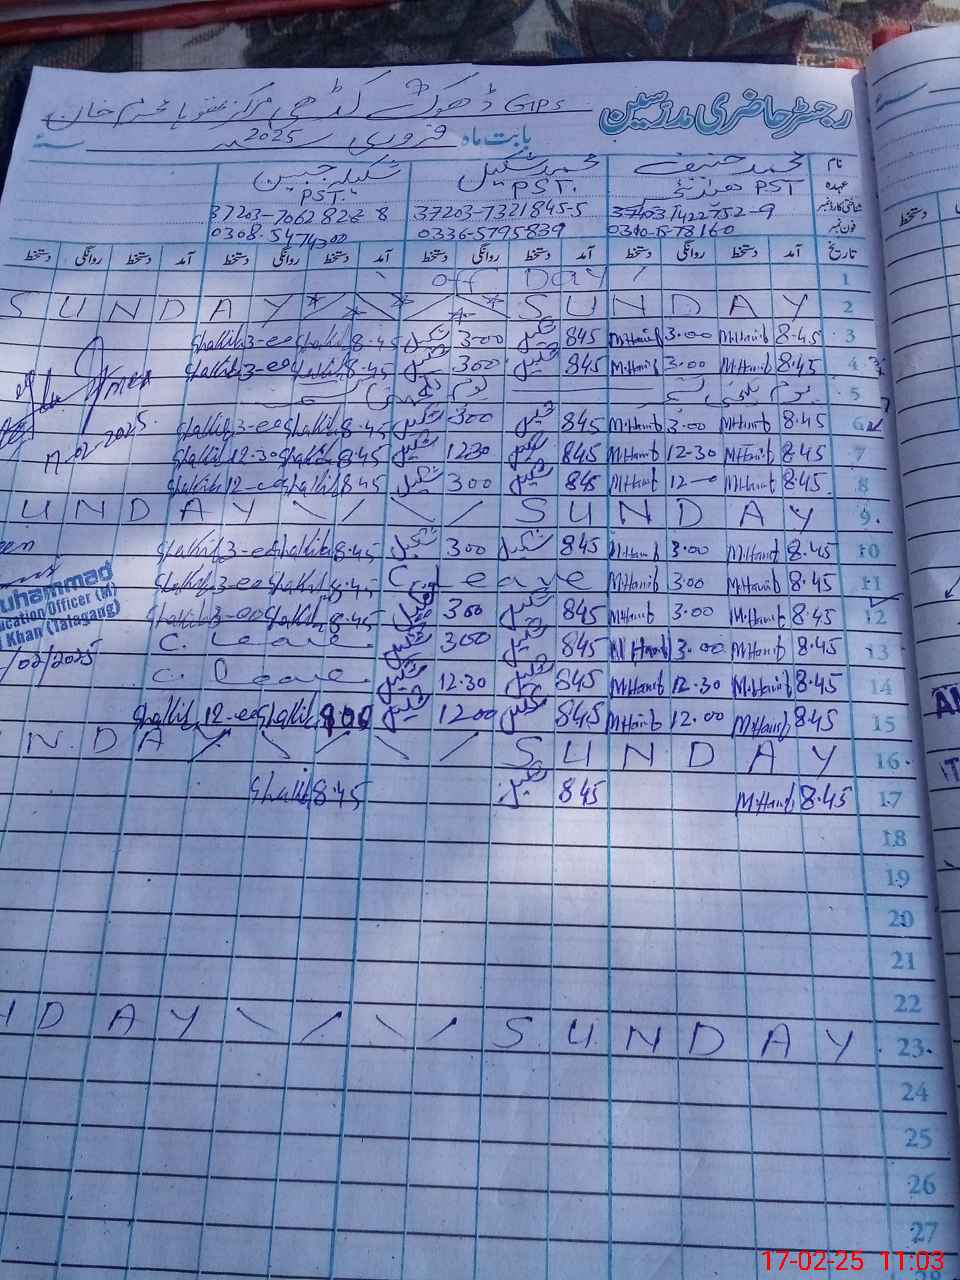 رجسٹر حاضری مدرسین
GPS ڈھوک کدھی مرکز
بابت ماہ فروری 2025 سنہ
نام محمد حنیف محمد شکیل شکیلہ جبین
عہدہ PST PST. PST.
شناختی کارڈ نمبر 37203-7321845-5
فون نمبر 0336-5795839
تاریخ آمد دستخط روانگی دستخط آمد دستخط روانگی دستخط آمد دستخط روانگی دستخط آمد دستخط روانگی دستخط
1 off DAY
2 SUNDAY SUNDAY
3 8.45 M.Hanif 3.00 M.Hanif 845 شکیل 300 شکیل 8.45 Shakila 3-00 Shakila
4 8.45 M.Hanif 3.00 M.Hanif 845 شکیل 300 شکیل 8.45 Shakila 3-00 Shakila
5 یوم یکجہتی کشمیر
6 8.45 M.Hanif 3.00 M.Hanif 845 شکیل 300 شکیل 8.45 Shakila 3-00 Shakila
7 8.45 M.Hanif 12-30 M.Hanif 845 شکیل 1230 شکیل 8.45 Shakila 12.30 Shakila
8 8.45 M.Hanif 12 M.Hanif 845 شکیل 300 شکیل 8.45 Shakila 12-00 Shakila
9 SUNDAY UNDAY
10 8.45 M.Hanif 3.00 M.Hanif 845 شکیل 300 شکیل 8.45 Shakila 3-00 Shakila
11 8.45 M.Hanif 3.00 M.Hanif C. Leave 8.45 Shakila 3-00 Shakila
12 8.45 M.Hanif 3.00 M.Hanif 845 شکیل 300 شکیل 8.45 Shakila 3-00 Shakila
13 8.45 M.Hanif 3.00 M.Hanif 845 شکیل 300 شکیل C. Leave
14 8.45 M.Hanif 12.30 M.Hanif 845 شکیل 12.30 شکیل C. leave
15 8.45 M.Hanif 12.00 M.Hanif 845 شکیل 1200 شکیل 800 Shakila 12-00 Shakila
16 SUNDAY NDA
17 8.45 M.Hanif 845 شکیل 8.45 Shakila
18
19
20
21
22
23 SUNDAY DAY
24
25
26
27
02-2025
uhammad
ucation Officer (M)
Khan (Talagang)
/02/2025
دستخط
17-02-25 11:03